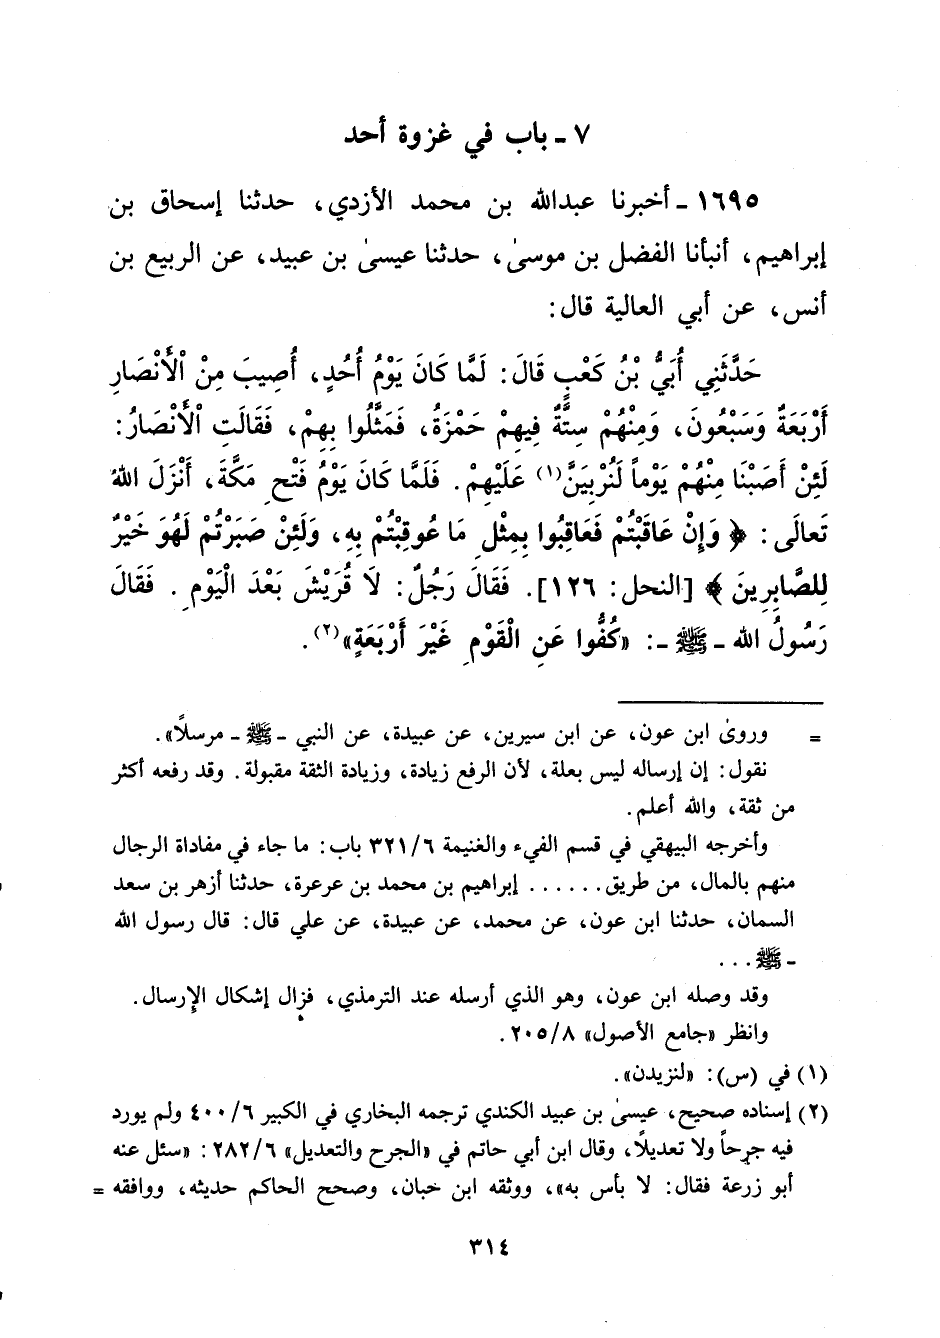 ٧ ـ باب في غزوة أحد
١٦٩٥ ـ أخبرنا عبدالله بن محمد الأزدي، حدثنا إسحاق بن
إبراهيم، أنبأنا الفضل بن موسىٰ، حدثنا عيسىٰ بن عبيد، عن الربيع بن
أنس، عن أبي العالية قال:
حَدَّثَنِي أُبَيُّ بْنُ كَعْبٍ قَالَ: لَمَّا كَانَ يَوْمُ أُحُدٍ، أُصِيبَ مِنْ الْأَنْصَارِ
أَرْبَعَةٌ وَسَبْعُونَ، وَمِنْهُمْ سِتَّةٌ فِيهِمْ حَمْزَةُ، فَمَثَّلُوا بِهِمْ، فَقَالَتِ الْأَنْصَارُ:
لَئِنْ أَصَبْنَا مِنْهُمْ يَوْماً لَنُرْبِيَنَّ(١) عَلَيْهِمْ. فَلَمَّا كَانَ يَوْمُ فَتْحِ مَكَّةَ، أَنْزَلَ اللهُ
تَعالَى: ﴿ وَإِنْ عَاقَبْتُمْ فَعَاقِبُوا بِمِثْلِ مَا عُوقِبْتُمْ بِهِ، وَلَئِنْ صَبَرْتُمْ لَهُوَ خَيْرٌ
لِلصَّابِرِينَ ﴾ [النحل: ١٢٦]. فَقَالَ رَجُلٌ: لَا قُرَيْشَ بَعْدَ الْيَوْمِ. فَقَالَ
رَسُولُ الله ـ ﷺ ـ: «كُفُّوا عَنِ الْقَوْمِ غَيْرَ أَرْبَعَةٍ»(٢).
= وروىٰ ابن عون، عن ابن سيرين، عن عبيدة، عن النبي ـ ﷺ ـ مرسلاً».
نقول: إن إرساله ليس بعلة، لأن الرفع زيادة، وزيادة الثقة مقبولة. وقد رفعه أكثر
من ثقة، والله أعلم.
وأخرجه البيهقي في قسم الفيء والغنيمة ٣٢١/٦ باب: ما جاء في مفاداة الرجال
منهم بالمال، من طريق...... إبراهيم بن محمد بن عرعرة، حدثنا أزهر بن سعد
السمان، حدثنا ابن عون، عن محمد، عن عبيدة، عن علي قال: قال رسول الله
ـ ﷺ ...
وقد وصله ابن عون، وهو الذي أرسله عند الترمذي، فزال إشكال الإرسال.
وانظر «جامع الأصول» ٢٠٥/٨.
(١) في (س): «لنزيدن».
(٢) إسناده صحيح، عيسىٰ بن عبيد الكندي ترجمه البخاري في الكبير ٤٠٠/٦ ولم يورد
فيه جرحاً ولا تعديلاً، وقال ابن أبي حاتم في «الجرح والتعديل» ٢٨٢/٦: «سئل عنه
أبو زرعة فقال: لا بأس به»، ووثقه ابن خبان، وصحح الحاكم حديثه، ووافقه =
٣١٤